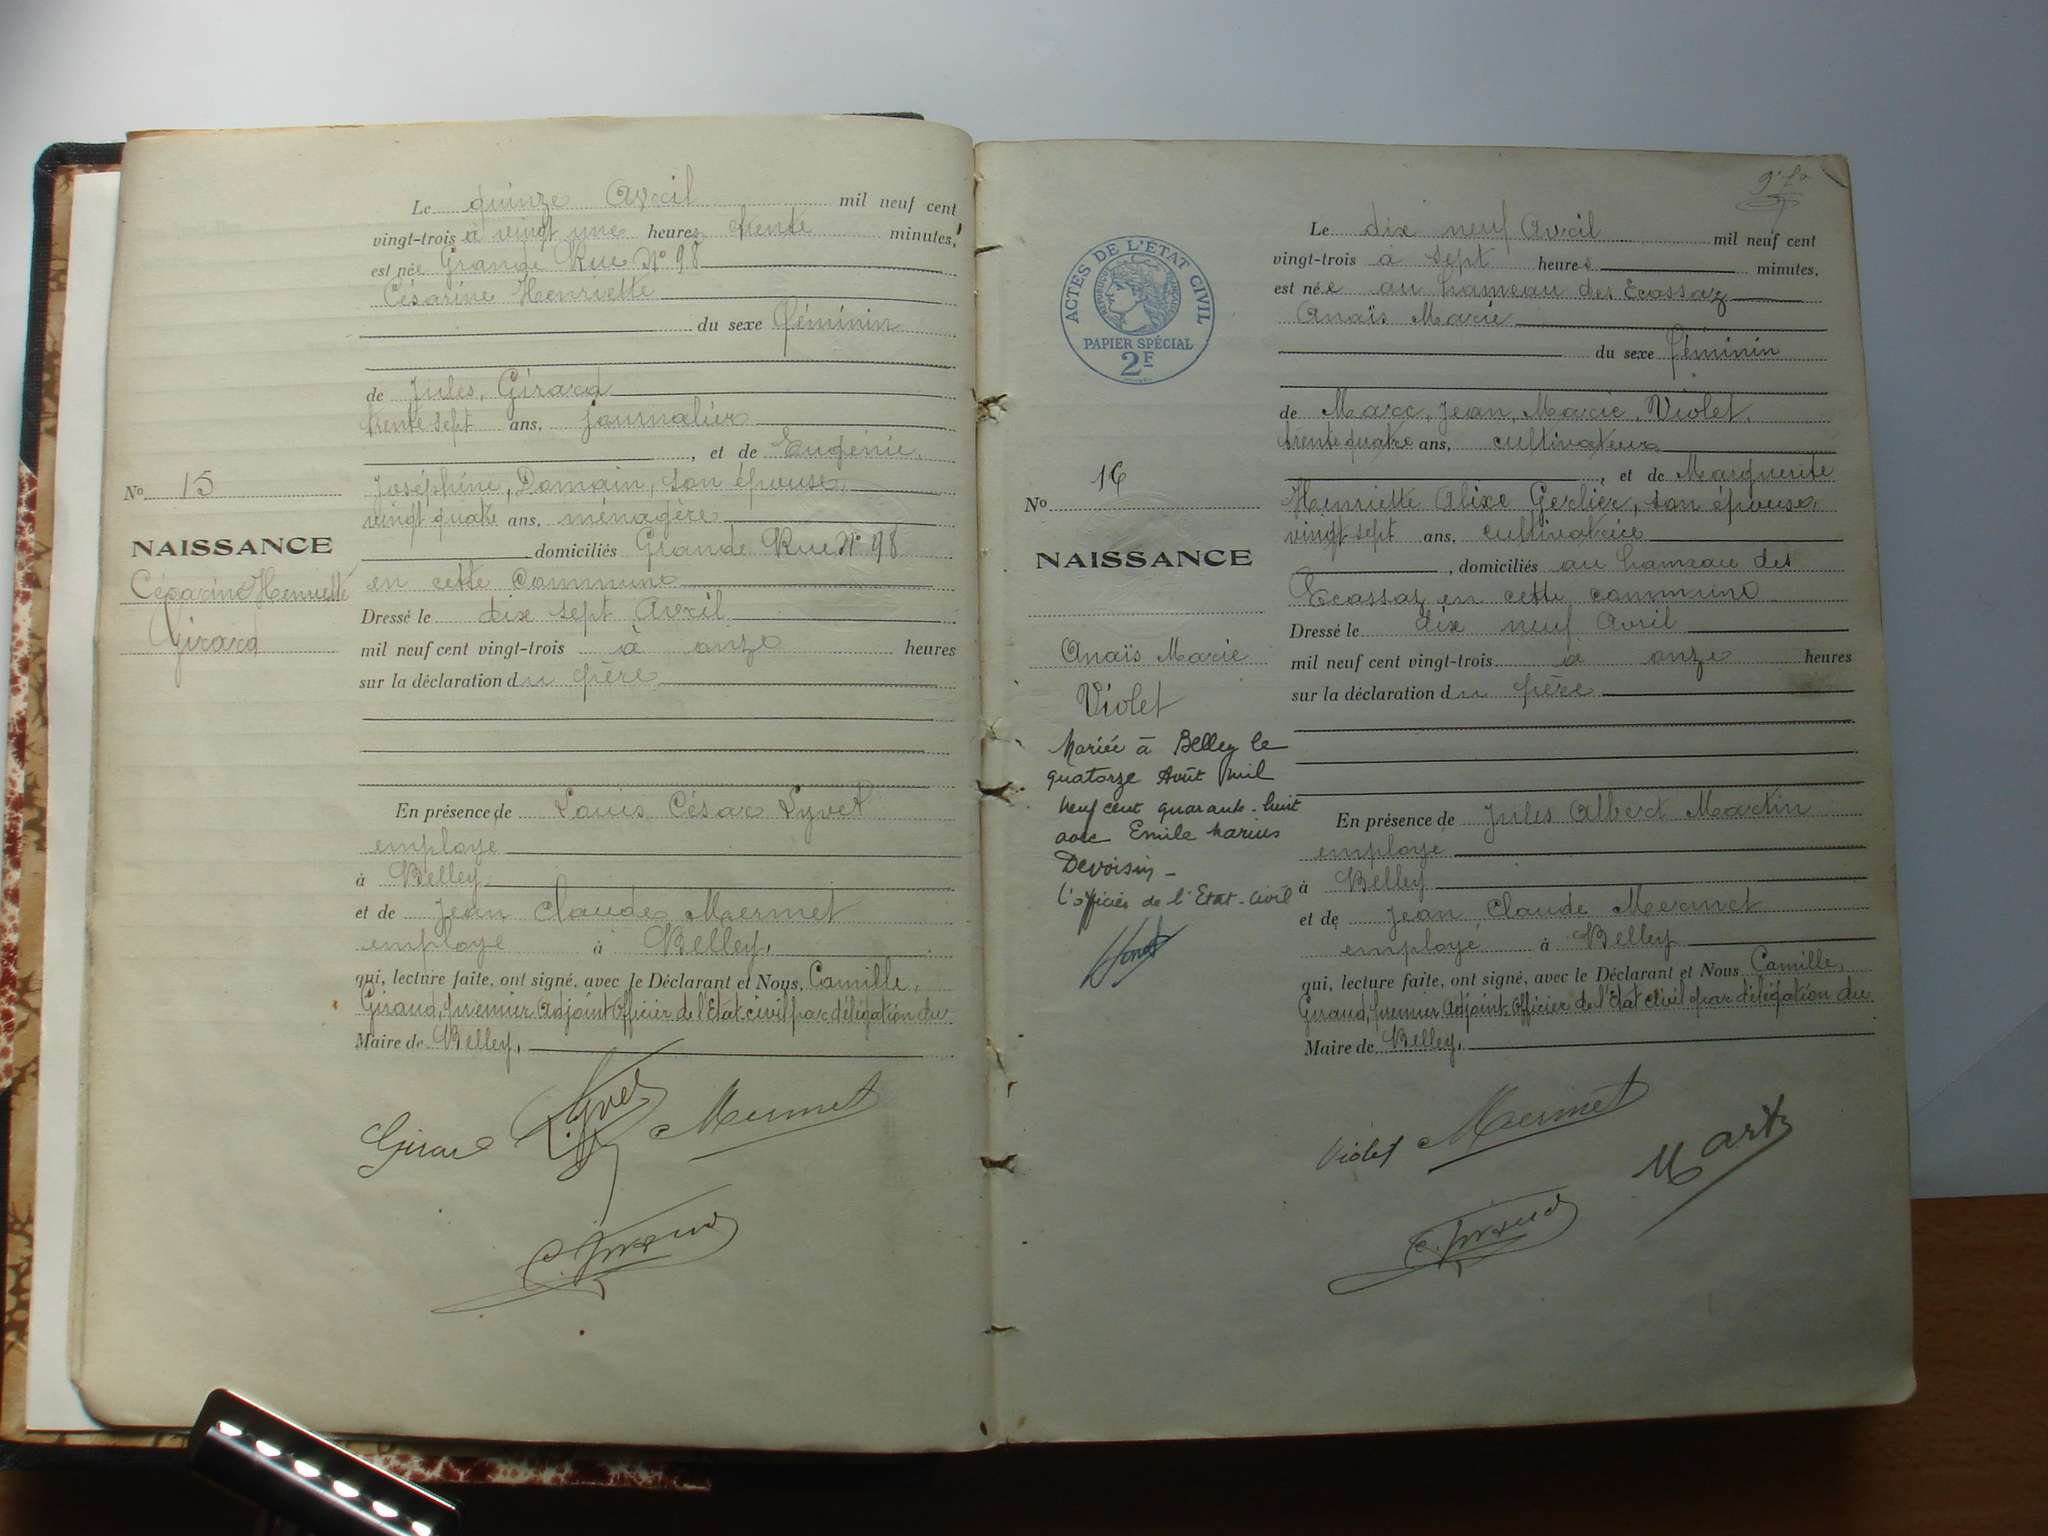 Le quinze Avril mil neuf cent
vingt-trois à vingt une heures trente minutes,
est née Grande Rue No 98
Césarine Henriette
du sexe féminin
de Jules, Girard
trente sept ans, journalier
, et de Eugénie,
Joséphine, Domain, son épouse,
vingt quatre ans, ménagère
domiciliés Grande Rue No 98
en cette commune
Dressé le dix sept Avril
mil neuf cent vingt-trois à onze heures
sur la déclaration du père
En présence de Louis César Lyvet
employé
à Belley
et de Jean Claude Mermet
employé à Belley,
qui, lecture faite, ont signé, avec le Déclarant et Nous, Camille,
Giraud, premier Adjoint Officier de l'Etat civil par délégation du
Maire de Belley,
No 15
NAISSANCE
Césarine Henriette
Girard
Girard Lyvet Mermet
C. Giraud
Le dix neuf Avril mil neuf cent
vingt-trois à sept heures minutes,
est née au hameau des Ecassaz
Anaïs Marie
du sexe féminin
de Marc, Jean, Marie, Violet,
trente quatre ans, cultivateur
, et de Marguerite
Henriette Alixe Gerlier, son épouse,
vingt sept ans, cultivatrice
, domiciliés au hameau des
Ecassaz en cette commune
Dressé le dix neuf Avril
mil neuf cent vingt-trois à onze heures
sur la déclaration du père
En présence de Jules Albert Martin
employé
à Belley
et de Jean Claude Mermet
employé à Belley
qui, lecture faite, ont signé, avec le Déclarant et Nous Camille,
Giraud, premier Adjoint Officier de l'Etat civil par délégation du
Maire de Belley,
ACTES DE L'ETAT CIVIL
RÉPUBLIQUE FRANÇAISE
PAPIER SPÉCIAL
2F
No 16
NAISSANCE
Anaïs Marie
Violet
Mariée à Belley le
quatorze Août mil
neuf cent quarante-huit
avec Emile Marius
Devoisin -
L'officier de l'Etat-Civil
Violet Mermet Mart
C. Giraud